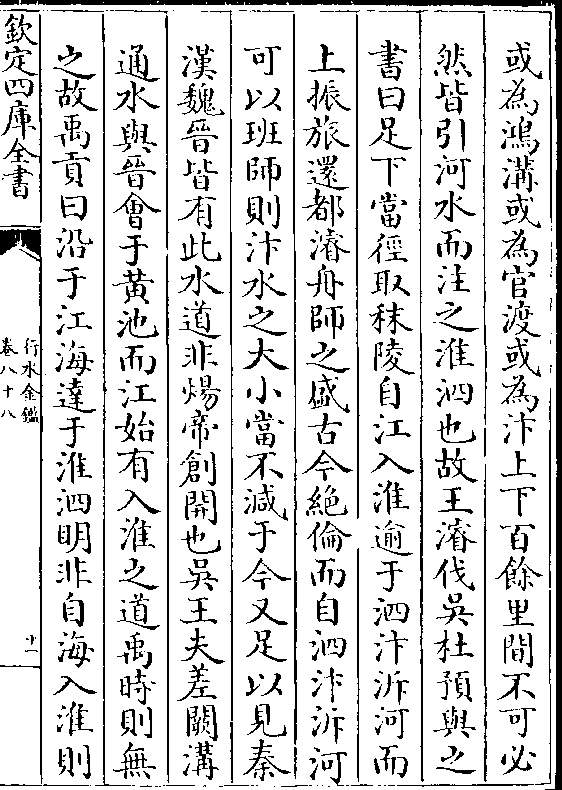 或為鴻溝或為官渡或為汴上下百餘里間不可必
然皆引河水而注之淮泗也故王濬伐吳杜預與之
書曰足下當徑取秣陵自江入淮逾于泗汴泝河而
上振旅還都濬舟師之盛古今絶倫而自泗汴泝河
可以班師則汴水之大小當不減于今又足以見秦
漢魏晉皆有此水道非煬帝創開也吳王夫差闕溝
通水與晉會于黃池而江始有入淮之道禹時則無
之故禹貢曰沿于江海達于淮泗明非自海入淮則
欽定四庫全書
行水金鑑
卷八十八
十一